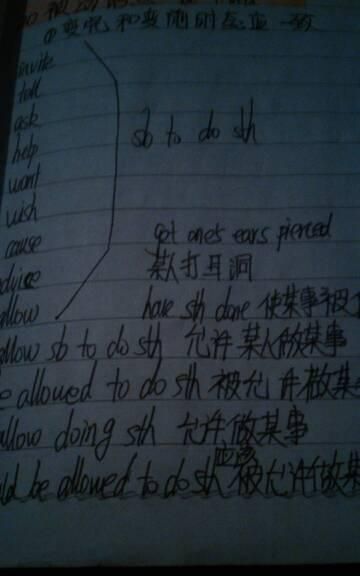 invite
tell
ask
help
want
wish
cause
advice
allow
sb to do sth
get one's ears pierced
某人打耳洞
have sth done 使某事被
allow sb to do sth 允许某人做某事
be allowed to do sth 被允许做某
allow doing sth 允许做某事
应该
ld be allowed to do sth 被允许做某